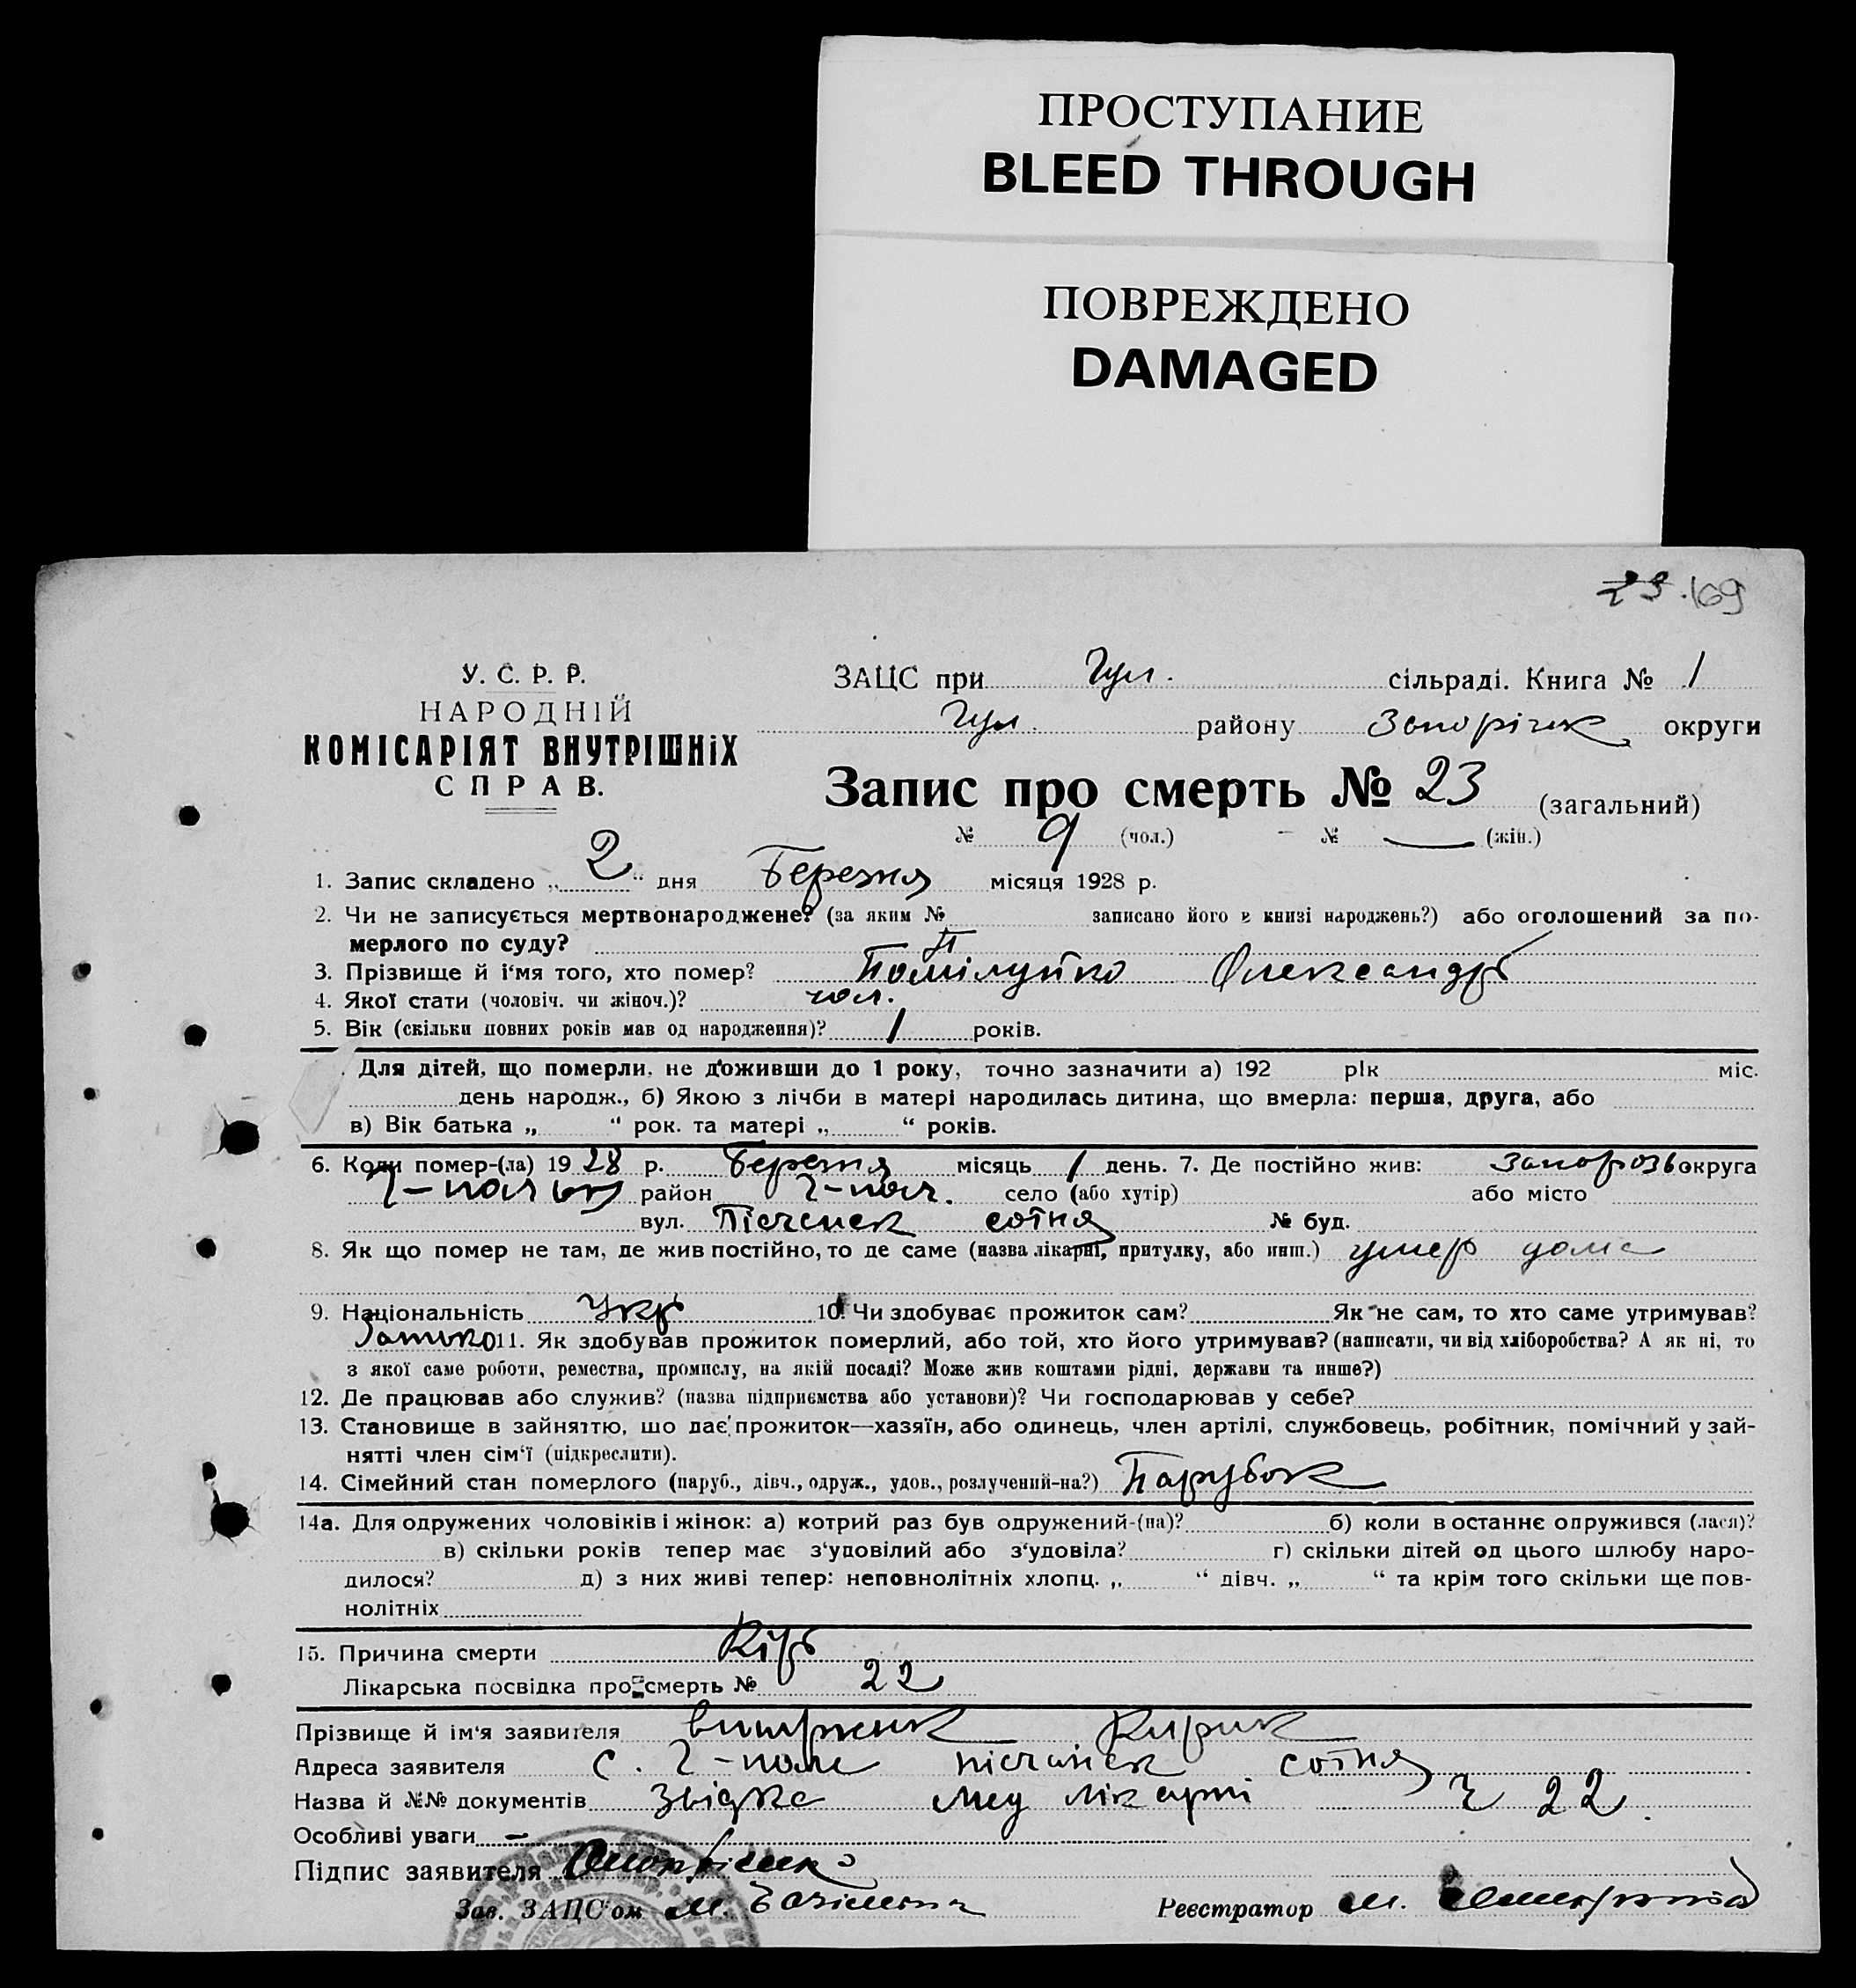 ПРОСТУПАНИЕ
BLEED THROUGH
ПОВРЕЖДЕНО
DAMAGED
23. 169
У. С. Р. Р.
НАРОДНІЙ
КОМІСАРІЯТ ВНУТРІШНІХ
СПРАВ.
ЗАЦС при Гул. сільраді. Книга № 1
Гул. району Запоріжк округи
Запис про смерть № 23 (загальний)
№ 9 (чол.) № — (жін.)
1. Запис складено „ 2 “ дня Березня місяця 1928 р.
2. Чи не записується мертвонароджене? (за яким № записано його в книзі народжень?) або оголошений за по-
мерлого по суду?
3. Прізвище й і‘мя того, хто помер? Помілуйко Олександр
4. Якої стати (чоловіч. чи жіноч.)? чол.
5. Вік (скільки повних років мав од народження)? 1 років.
Для дітей, що померли, не доживши до 1 року, точно зазначити а) 192 рік міс.
день народж., б) Якою з лічби в матері народилась дитина, що вмерла: перша, друга, або
в) Вік батька „ “ рок. та матері „ “ років.
6. Коли помер-(ла) 19 28 р. Березня місяць 1 день. 7. Де постійно жив: Запорозь округа
район Г-пол. село (або хутір) або місто
вул. Пісченск сотня № буд.
8. Як що помер не там, де жив постійно, то де саме (назва лікарні, притулку, або инш.) умер дома
9. Національність Укр 10. Чи здобуває прожиток сам? Як не сам, то хто саме утримував?
Батько 11. Як здобував прожиток померлий, або той, хто його утримував? (написати, чи від хліборобства? А як ні, то
з якої саме роботи, ремества, промислу, на якій посаді? Може жив коштами рідні, держави та инше?)
12. Де працював або служив? (назва підприємства або установи)? Чи господарював у себе?
13. Становище в зайняттю, що дає прожиток—хазяїн, або одинець, член артілі, службовець, робітник, помічний у зай-
нятті член сім‘ї (підкреслити).
14. Сімейний стан померлого (паруб., дівч., одруж., удов., розлучений-на?) Парубок
14а. Для одружених чоловіків і жінок: а) котрий раз був одружений-(на)? б) коли востаннє одружився (лася)?
в) скільки років тепер має з‘удовілий або з‘удовіла? г) скільки дітей од цього шлюбу наро-
дилося? д) з них живі тепер: неповнолітніх хлопц. „ “ дівч. „ “ та крім того скільки ще пов-
нолітніх
15. Причина смерти Кір
Лікарська посвідка про смерть № 22
Прізвище й ім‘я заявителя Кирик
Адреса заявителя с. Г-поле пісчанск сотня
Назва й №№ документів Звідка мед лікарні ч 22.
Особливі уваги —
Підпис заявителя
Зав. ЗАЦС‘ом М.
Реєстратор М.